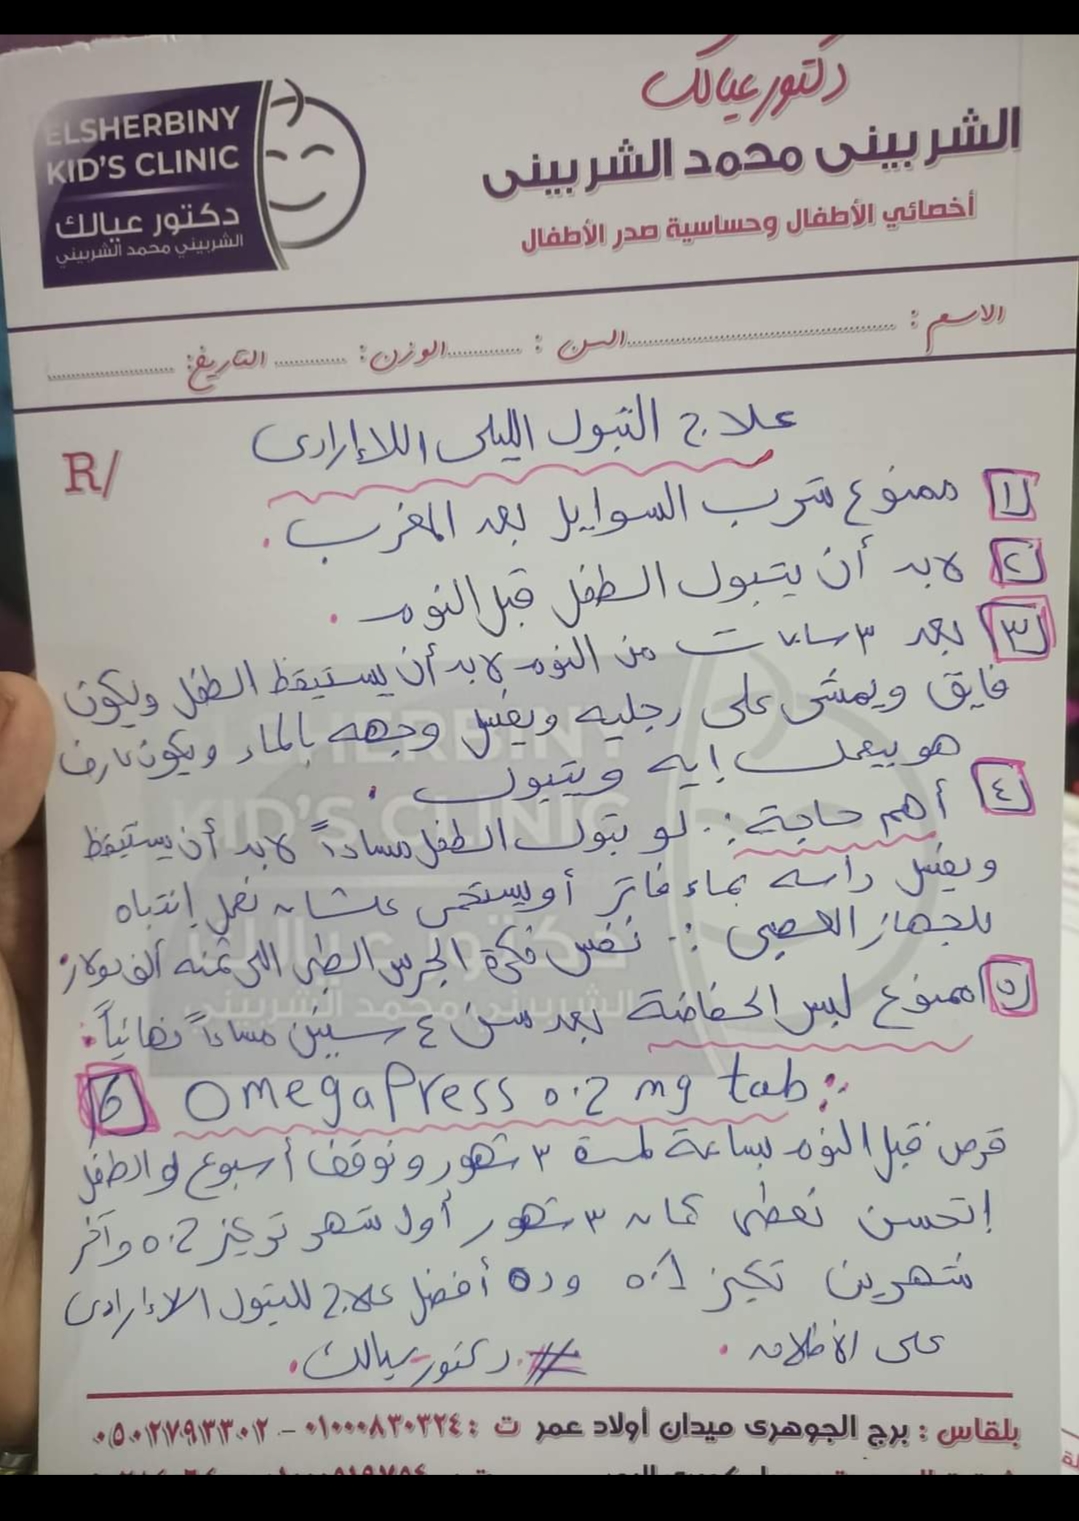 دكتور عيالك
الشربينى محمد الشربينى
أخصائي الأطفال وحساسية صدر الأطفال
ELSHERBINY
KID'S CLINIC
دكتور عيالك
الشربيني محمد الشربيني
الاسم : السن : الوزن: التاريخ:
R/
علاج التبول الليلى اللاإرادى
١ ممنوع شرب السوايل بعد المغرب.
٢ لابد أن يتبول الطفل قبل النوم.
٣ بعد ٣ ساعات من النوم لابد أن يستيقظ الطفل ويكون
فايق ويمشى على رجليه ويغسل وجهه بالماء ويكون عارف
هو بيعمل إيه ويتبول.
٤ أهم حاجة :. لو بتول الطفل مساءاً لابد أن يستيقظ
ويغسل راسه بماء فاتر أو يستحمى علشان نعمل إنتباه
للجهاز العصبى :. نفس فكرة الجرس الطبى اللى تمنه ألف دولار
٥ ممنوع لبس الحفاضة بعد سن ٤ سنين مساءاً نهائياً.
6 Omegapress 0.2 mg tab :.
قرص قبل النوم بساعة لمدة ٣ شهور ونوقف أسبوع لو الطفل
إتحسن نعطى كمان ٣ شهور أول شهر تركيز 0.2 وآخر
شهرين تكيز 0.1 وده أفضل علاج للتبول الاإرادى
على الأطلاق. # دكتور-عيالك.
ELSHERBINY
KID'S CLINIC
دكتور عيالك
الشربيني محمد الشربيني
بلقاس : برج الجوهرى ميدان أولاد عمر ت : ٠١٠٠٠٨٣٠٣٢٤ - ٠٥٠٢٧٩٣٣٠٢